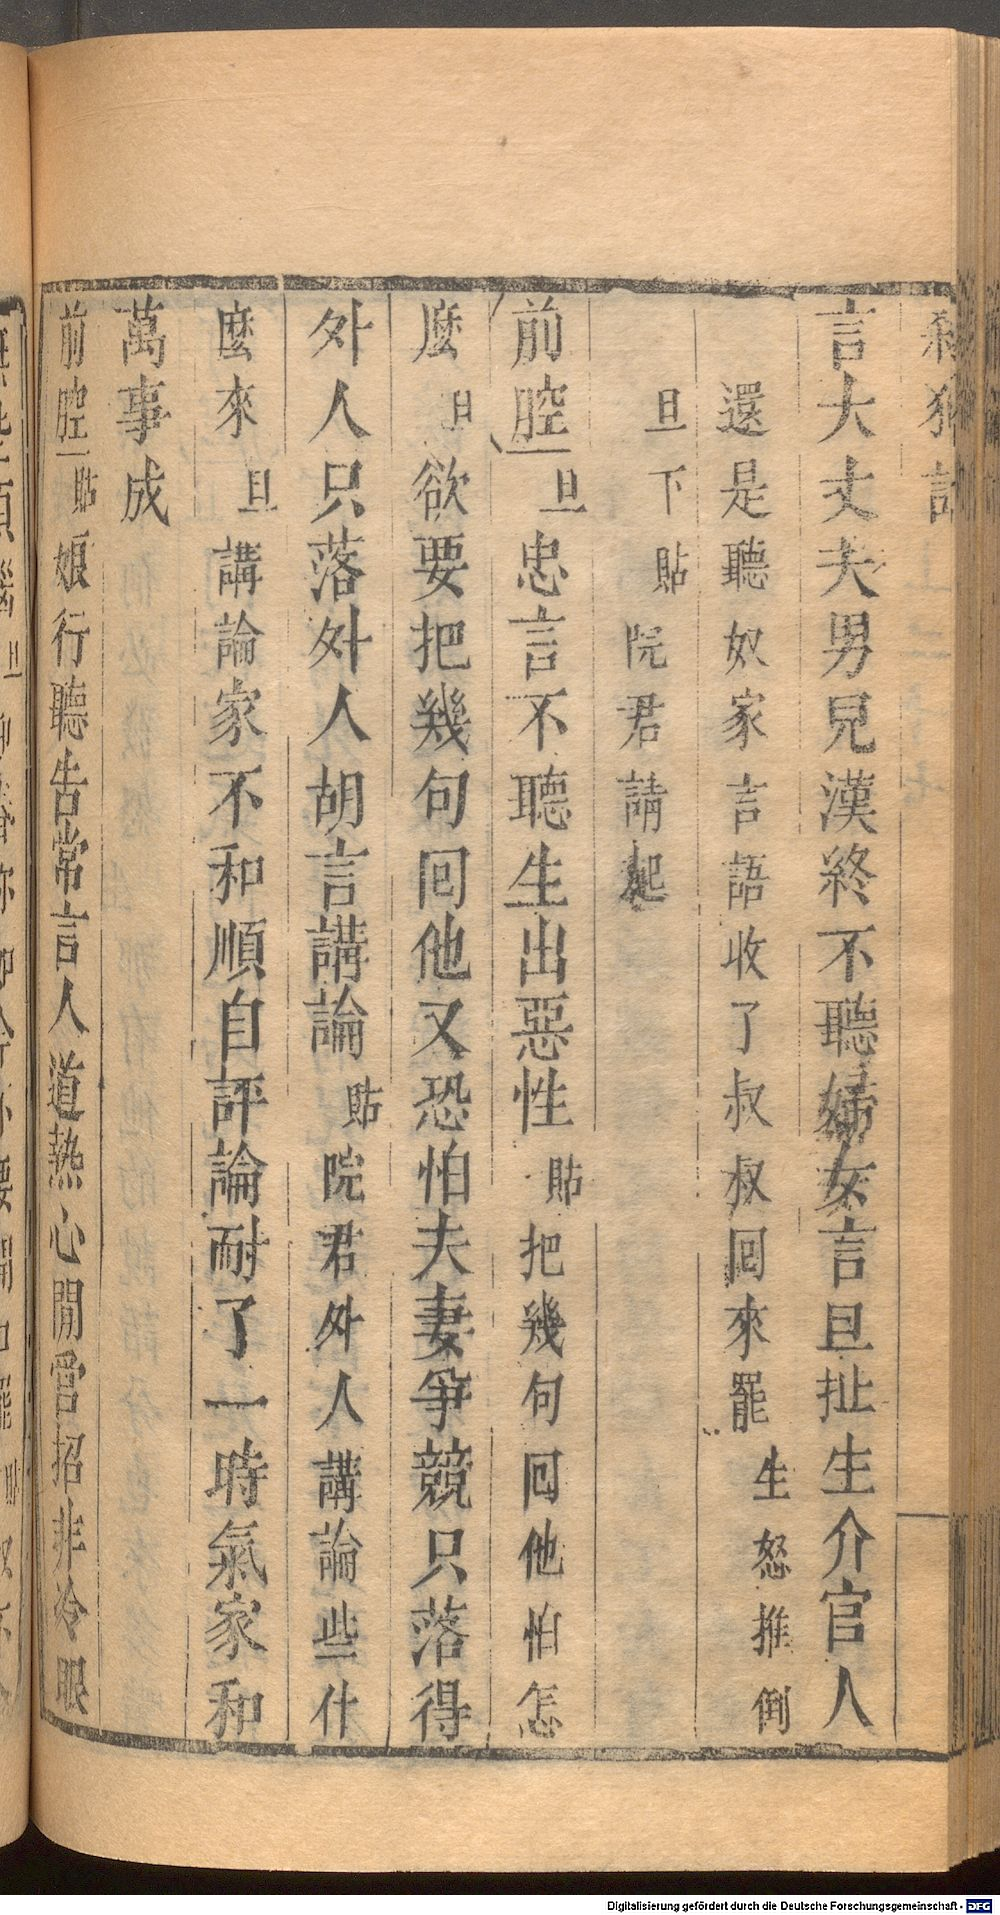 殺狗記
言大丈夫男兒漢終不聽婦女言旦扯生介官人
還是聽奴家言語收了叔叔回來罷生怒推倒
旦下貼院君請起
前腔旦忠言不聽生出惡性貼把幾句回他怕怎
麽旦欲要把幾句回他又恐怕夫妻爭競只落得
外人只落外人胡言講論貼院君外人講論些什
麽來旦講論家不和順自評論耐了一時氣家和
萬事成
前腔貼娘行聽告常言人道熱心閒管招非冷眼
Digitalisierung gefördert durch die Deutsche Forschungsgemeinschaft - DFG